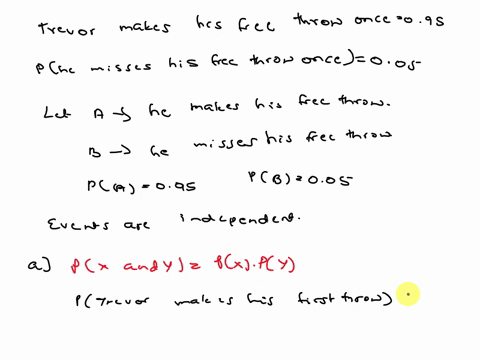 Trevor makes his free throw once=0.95
P(he misses his free throw once)=0.05
Let A → he makes his free throw.
B → he misses his free throw
P(A)=0.95 P(B)=0.05
Events are independent.
a) P(X and Y)= P(X).P(Y)
P(Trevor makes his first throw)